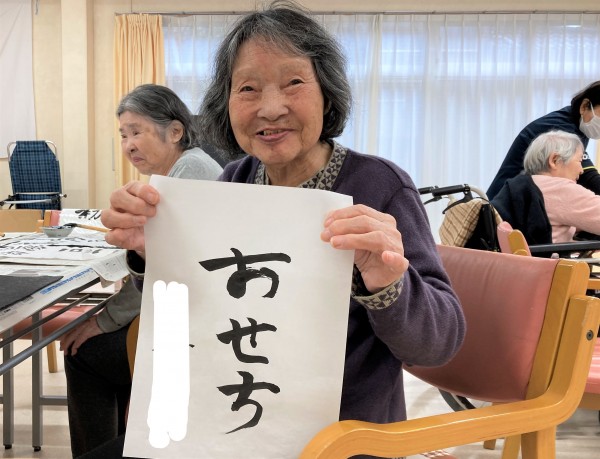 おせち